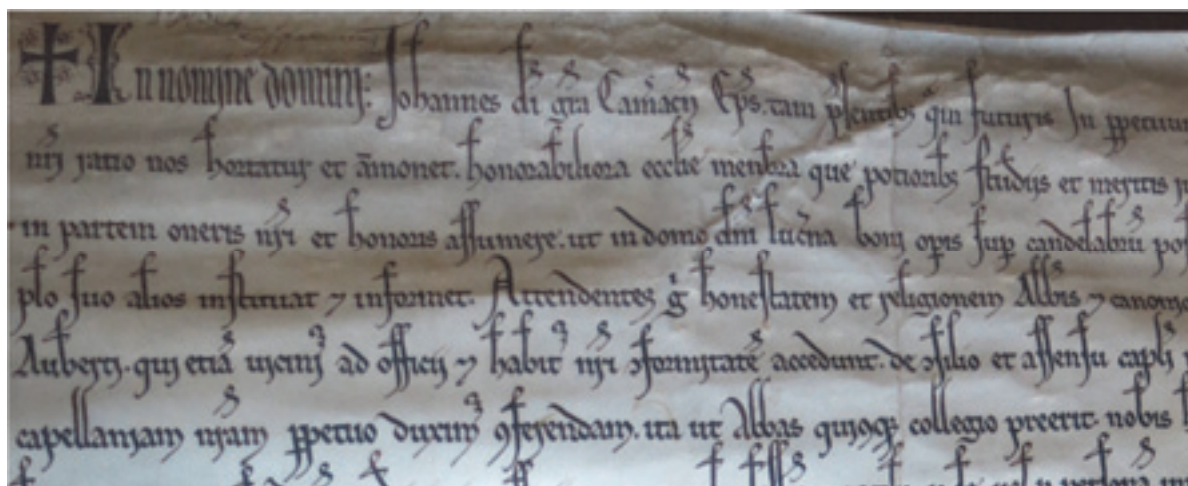 In nomine domini: Johannes di gra Camacen Eps. tam psentibs qm futuris In ppetuum
nri ratio nos hortatur et amonet. honorabiliora ecclie menbra que potioribs studiis et meritis
in partem oneris nri et honoris assumere. ut in domo dni lucerna boni opis sup candelabru
plo suo alios instituat ⁊ informet. Attendentes g honestatem et religionem Abbis ⁊
Auberti. qui etia uicini ad officii ⁊ habit nri ꝯformitate accedunt. de ꝯsilio et assensu capli
capellaniam nram ppetuo duxim ꝯferendam. ita ut Abbas quioqꝫ collegio preerit. nobis